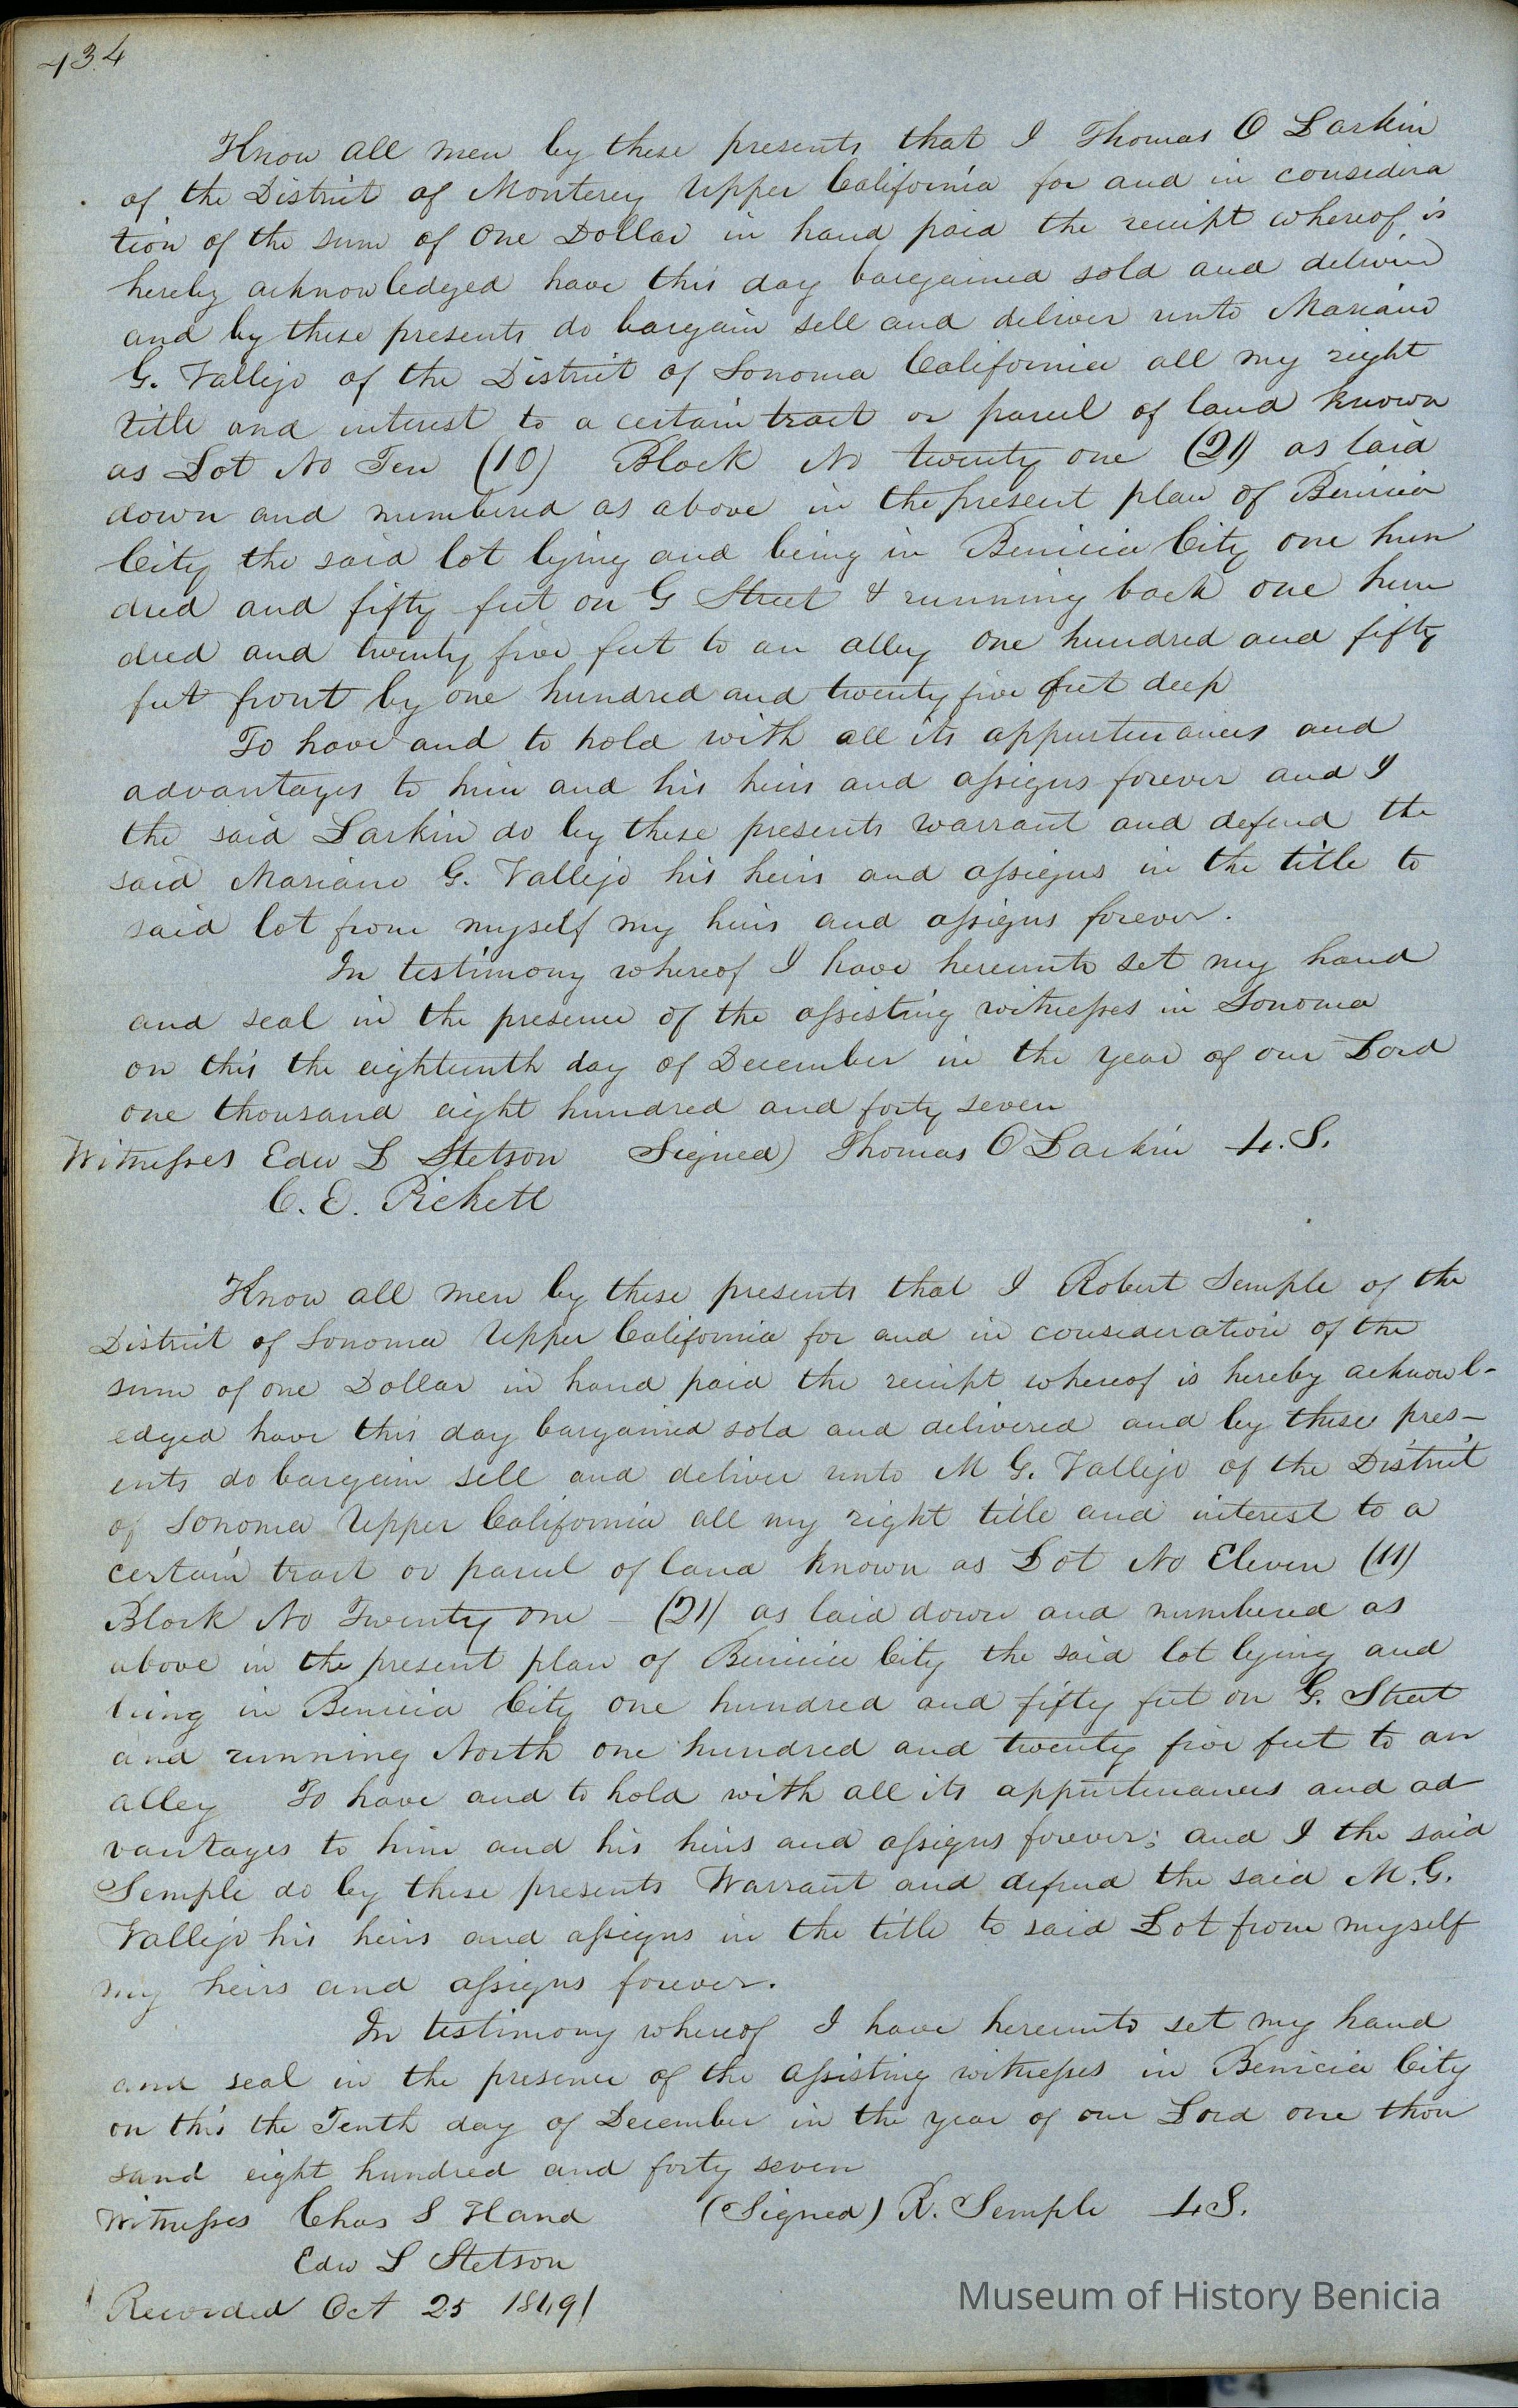 434
Know all men by these presents that I Thomas O Larkin
of the District of Monterey Upper California for and in considera
tion of the sum of One Dollar in hand paid the receipt whereof is
hereby acknowledged have this day bargained sold and delivered
and by these presents do bargain sell and deliver unto Mariano
G. Vallejo of the District of Sonoma California all my right
title and interest to a certain tract or parcel of land known
as Lot No Ten (10) Block No twenty one (21) as laid
down and numbered as above in the present plan of Benicia
City the said lot lying and being in Benicia City one hun
dred and fifty feet on G Street & running back one hun
dred and twenty five feet to an alley one hundred and fifty
feet front by one hundred and twenty five feet deep
To have and to hold with all its appurtenances and
advantages to him and his heirs and assigns forever and I
the said Larkin do by these presents warrant and defend the
said Mariano G. Vallejo his heirs and assigns in the title to
said lot from myself my heirs and assigns forever.
In testimony whereof I have hereunto set my hand
and seal in the presence of the assisting witnesses in Sonoma
on this the eighteenth day of December in the year of our Lord
one thousand eight hundred and forty seven
Witnesses Edw L Stetson Signed) Thomas O Larkin L.S.
C. E. Pickett
Know all men by these presents that I Robert Semple of the
District of Sonoma Upper California for and in consideration of the
sum of one Dollar in hand paid the receipt whereof is hereby acknowl-
edged have this day bargained sold and delivered and by these pres-
ents do bargain sell and deliver unto M G. Vallejo of the District
of Sonoma Upper California all my right title and interest to a
certain tract or parcel of land known as Lot No Eleven (11)
Block No Twenty one - (21) as laid down and numbered as
above in the present plan of Benicia City the said lot lying and
being in Benicia City one hundred and fifty feet on G. Street
and running North one hundred and twenty five feet to an
alley To have and to hold with all its appurtenances and ad
vantages to him and his heirs and assigns forever; and I the said
Semple do by these presents Warrant and defend the said M. G.
Vallejo his heirs and assigns in the title to said Lot from myself
my heirs and assigns forever.
In testimony whereof I have hereunto set my hand
and seal in the presence of the assisting witnesses in Benicia City
on this the Tenth day of December in the year of our Lord one thou
sand eight hundred and forty seven
Witnesses Chas S Hand (Signed) R. Semple L S.
Edw L Stetson
Recorded Oct 25 1849
Museum of History Benicia